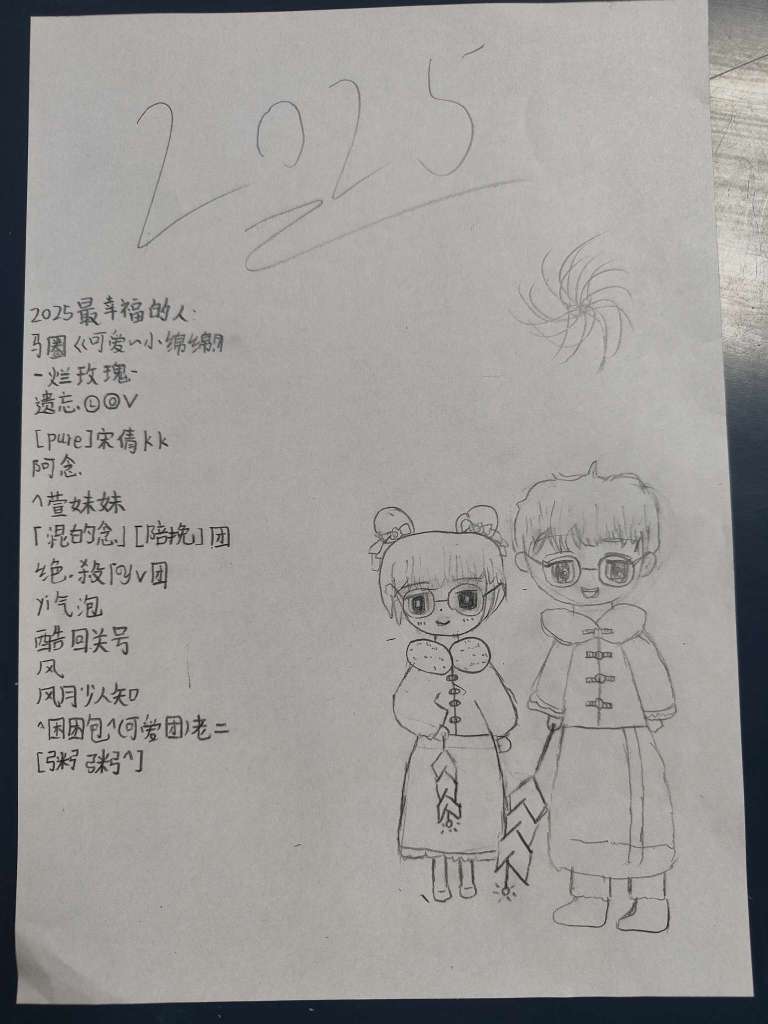 2025
2025最幸福的人:
马圈《可爱~小绵绵
-烂玫瑰-
遗忘.ⓁⓞV
[pure]宋倩kk
阿念.
^萱妹妹
「混的念」[陪挽]团
绝.殺阿yv团
yi气泡
酷回关号
风
风月少人知
^困困包^(可爱团)老二
[粥粥^]